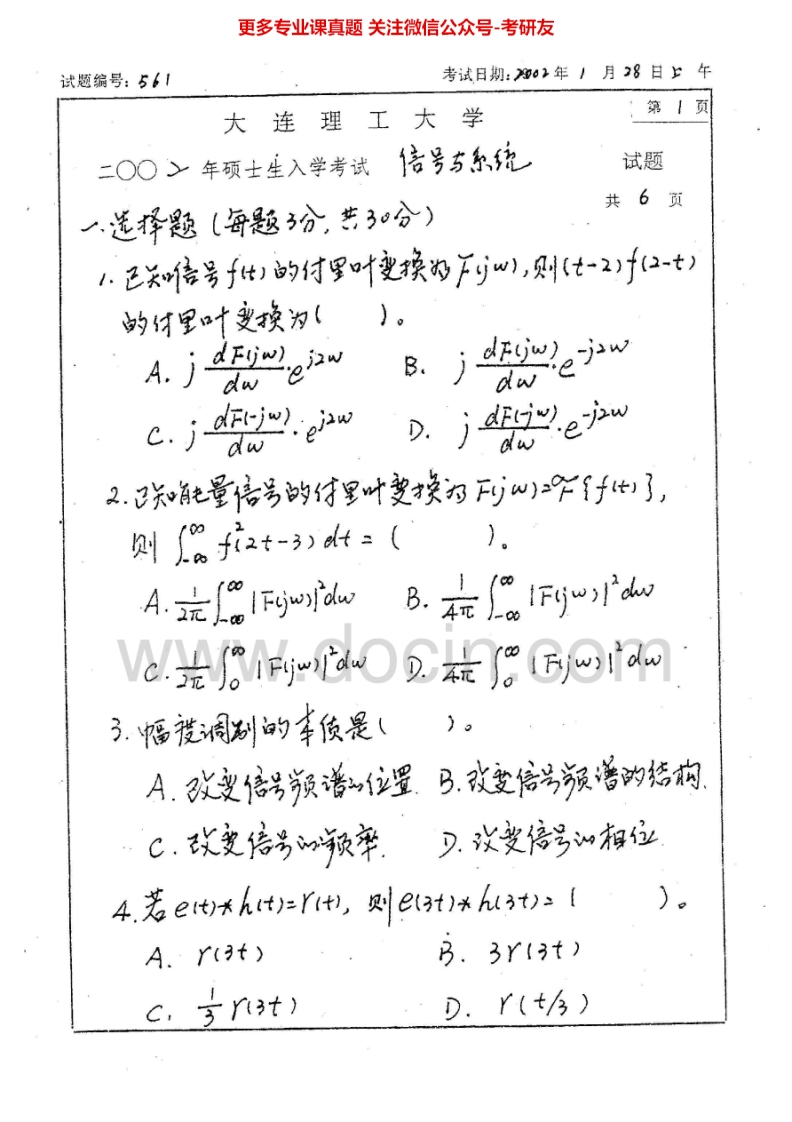 更多专业课真题 关注微信公众号-考研友
试题编号: 561 考试日期: 2002年 1 月 28 日 上 午
第 1 页
大 连 理 工 大 学
二〇〇二 年硕士生入学考试 信号与系统 试题
共 6 页
一、选择题 (每题3分, 共30分)
1. 已知信号f(t)的付里叶变换为F(jω), 则(t-2)f(2-t)
的付里叶变换为( )。
A. j dF(jω)/dω · e^{j2ω} B. j dF(jω)/dω · e^{-j2ω}
C. j dF(-jω)/dω · e^{j2ω} D. j dF(-jω)/dω · e^{-j2ω}
2. 已知能量信号的付里叶变换为 F(jω)=ℱ{f(t)},
则 ∫_{-∞}^{∞} f²(2t-3)dt = ( )。
A. 1/2π ∫_{-∞}^{∞} |F(jω)|²dω B. 1/4π ∫_{-∞}^{∞} |F(jω)|²dω
www.docin.com
C. 1/2π ∫_0^{∞} |F(jω)|²dω D. 1/4π ∫_0^{∞} |F(jω)|²dω
3. 幅度调制的本质是( )。
A. 改变信号频谱的位置 B. 改变信号频谱的结构.
C. 改变信号的频率. D. 改变信号的相位
4. 若 e(t)*h(t)=r(t), 则 e(3t)*h(3t)= ( )。
A. r(3t) B. 3r(3t)
C. 1/3 r(3t) D. r(t/3)